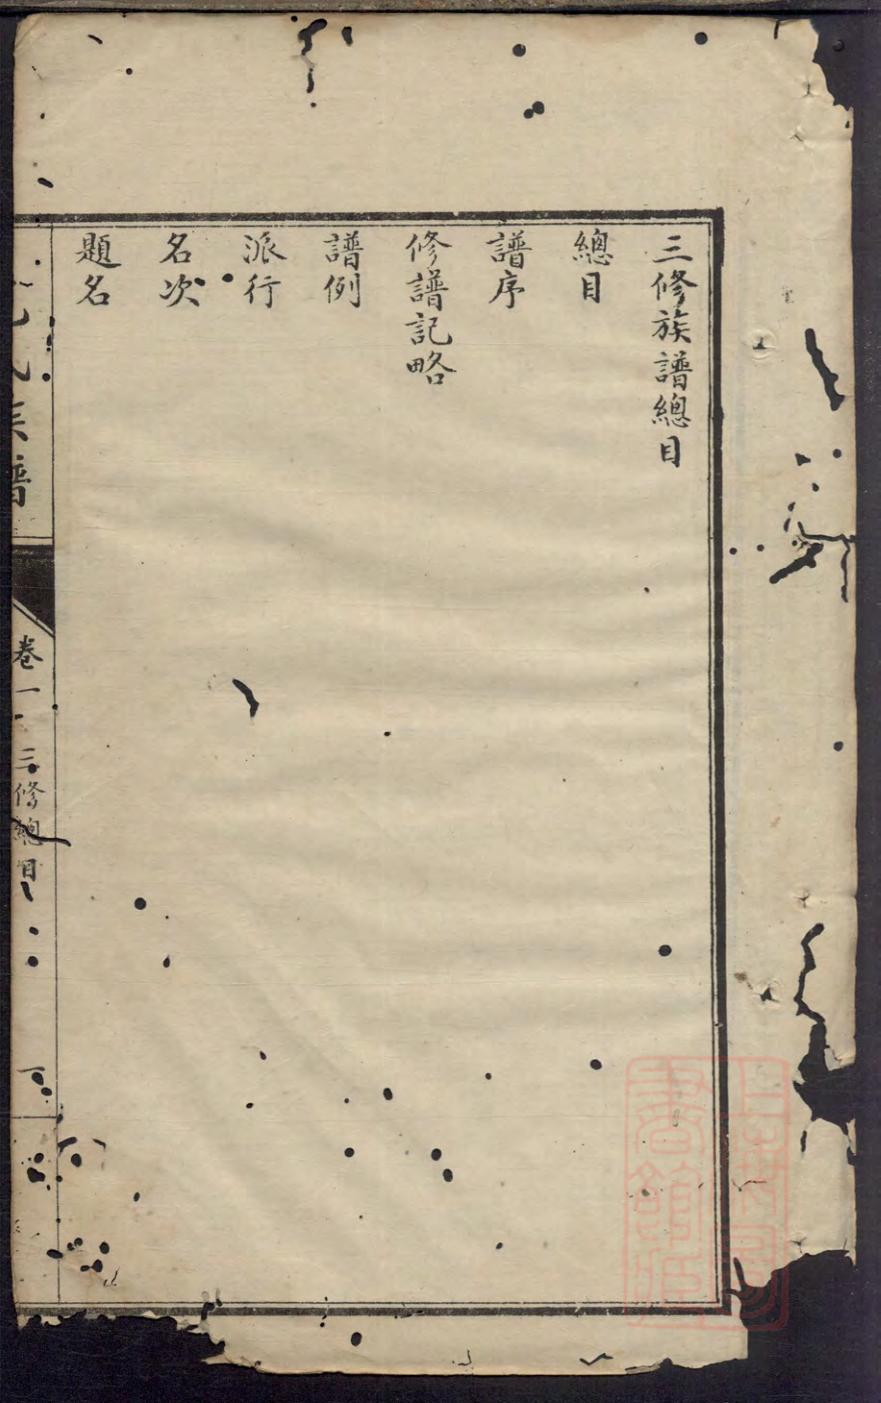 三修族譜總目
總目
譜序
修譜記略
譜例
派行
名次
題名
氏族譜
卷一
三修總目
一